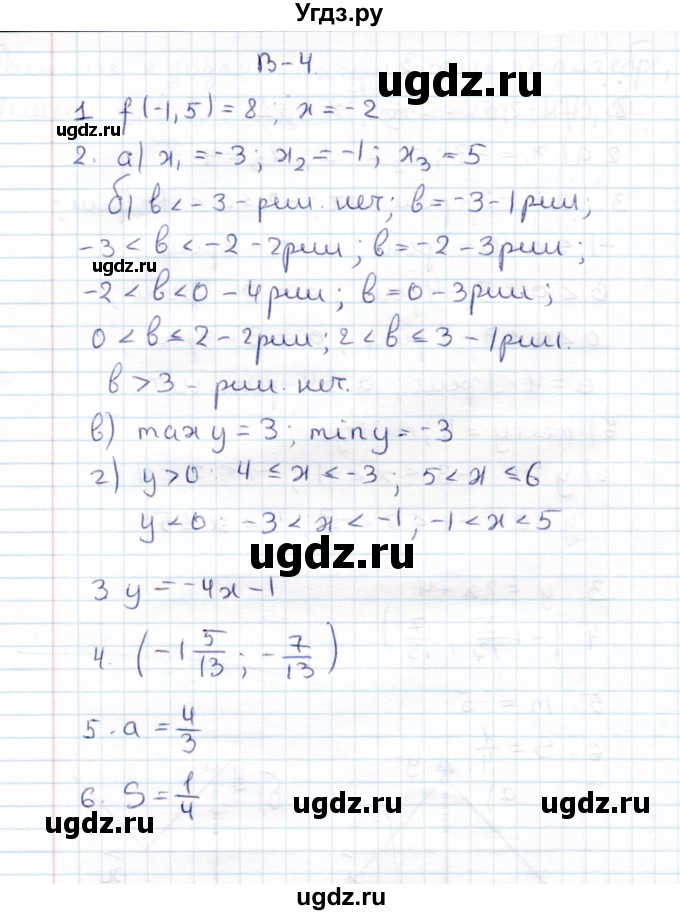 Угдз.ру
В-4
ugdz.ru
1 f(-1,5) = 8; x = -2
ugdz.ru
2. а) x₁ = -3; x₂ = -1; x₃ = 5
б) в < -3 - реш. нет; в = -3 - 1 реш;
-3 < в < -2 - 2 реш; в = -2 - 3 реш;
ugdz.ru
-2 < в < 0 - 4 реш; в = 0 - 3 реш;
0 < в ≤ 2 - 2 реш; 2 < в ≤ 3 - 1 реш.
в > 3 - реш. нет.
в) max y = 3; min y = -3
г) y > 0: 4 ≤ x < -3; 5 < x ≤ 6
y < 0: -3 < x < -1; -1 < x < 5
ugdz.ru
3 y = -4x - 1
4. (-1 5/13; -7/13)
ugdz.ru
5. a = 4/3
6. S = 1/4
ugdz.ru
ugdz.ru
ugdz.ru
ugdz.ru